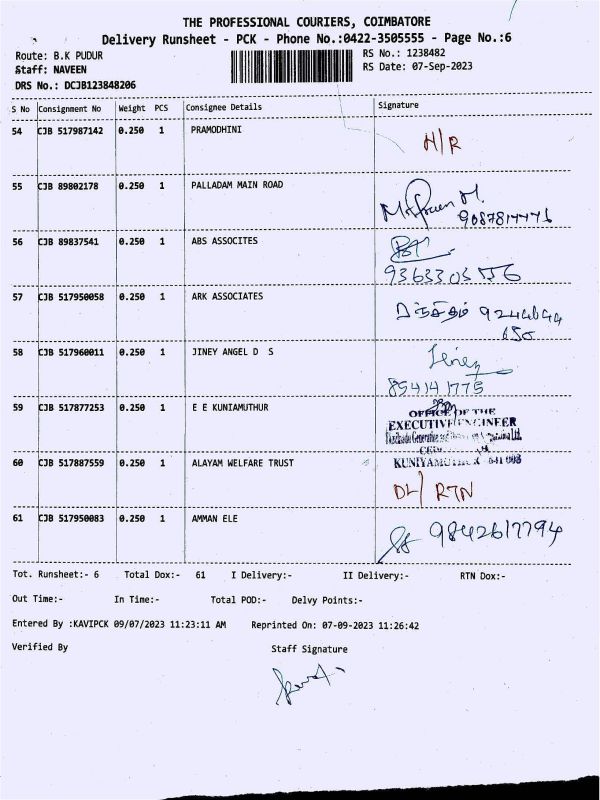 THE PROFESSIONAL COURIERS, COIMBATORE
Delivery Runsheet - PCK - Phone No.:0422-3505555 - Page No.:6
Route: B.K PUDUR
RS No.: 1238482
Staff: NAVEEN
RS Date: 07-Sep-2023
DRS No.: DCJB123848206
S No Consignment No Weight PCS Consignee Details Signature
54 CJB 517987142 0.250 1 PRAMODHINI
H/R
55 CJB 89802178 0.250 1 PALLADAM MAIN ROAD
56 CJB 89837541 0.250 1 ABS ASSOCITES
57 CJB 517950058 0.250 1 ARK ASSOCIATES
58 CJB 517960011 0.250 1 JINEY ANGEL D S
85414 1775
59 CJB 517877253 0.250 1 E E KUNIAMUTHUR
OFFICE OF THE
EXECUTIVE ENGINEER
60 CJB 517887559 0.250 1 ALAYAM WELFARE TRUST
DL/ RTN
61 CJB 517950083 0.250 1 AMMAN ELE
9842617794
Tot. Runsheet:- 6 Total Dox:- 61 I Delivery:- II Delivery:- RTN Dox:-
Out Time:- In Time:- Total POD:- Delvy Points:-
Entered By :KAVIPCK 09/07/2023 11:23:11 AM Reprinted On: 07-09-2023 11:26:42
Verified By Staff Signature